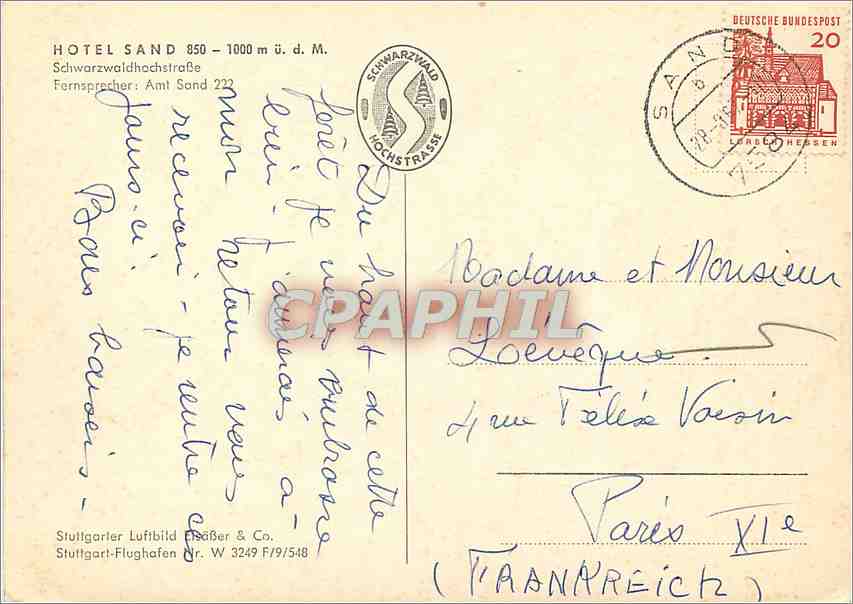 HOTEL SAND 850 – 1000 m ü. d. M.
Schwarzwaldhochstraße
Fernsprecher: Amt Sand 222
SCHWARZWALD
HOCHSTRASSE
DEUTSCHE BUNDESPOST
20
LORSCH/HESSEN
SAND
Du haut de cette
forêt je vous embrasse
bien. J'aimerais à
mon retour vous
recevoir – je rentre ces
jours-ci.
Bons baisers –
CPAPHIL
Madame et Monsieur
Lévêque
4 rue Félix Voisin
Paris XIe
(FRANKREICH)
Stuttgarter Luftbild Elsäßer & Co.
Stuttgart-Flughafen Nr. W 3249 F/9/548